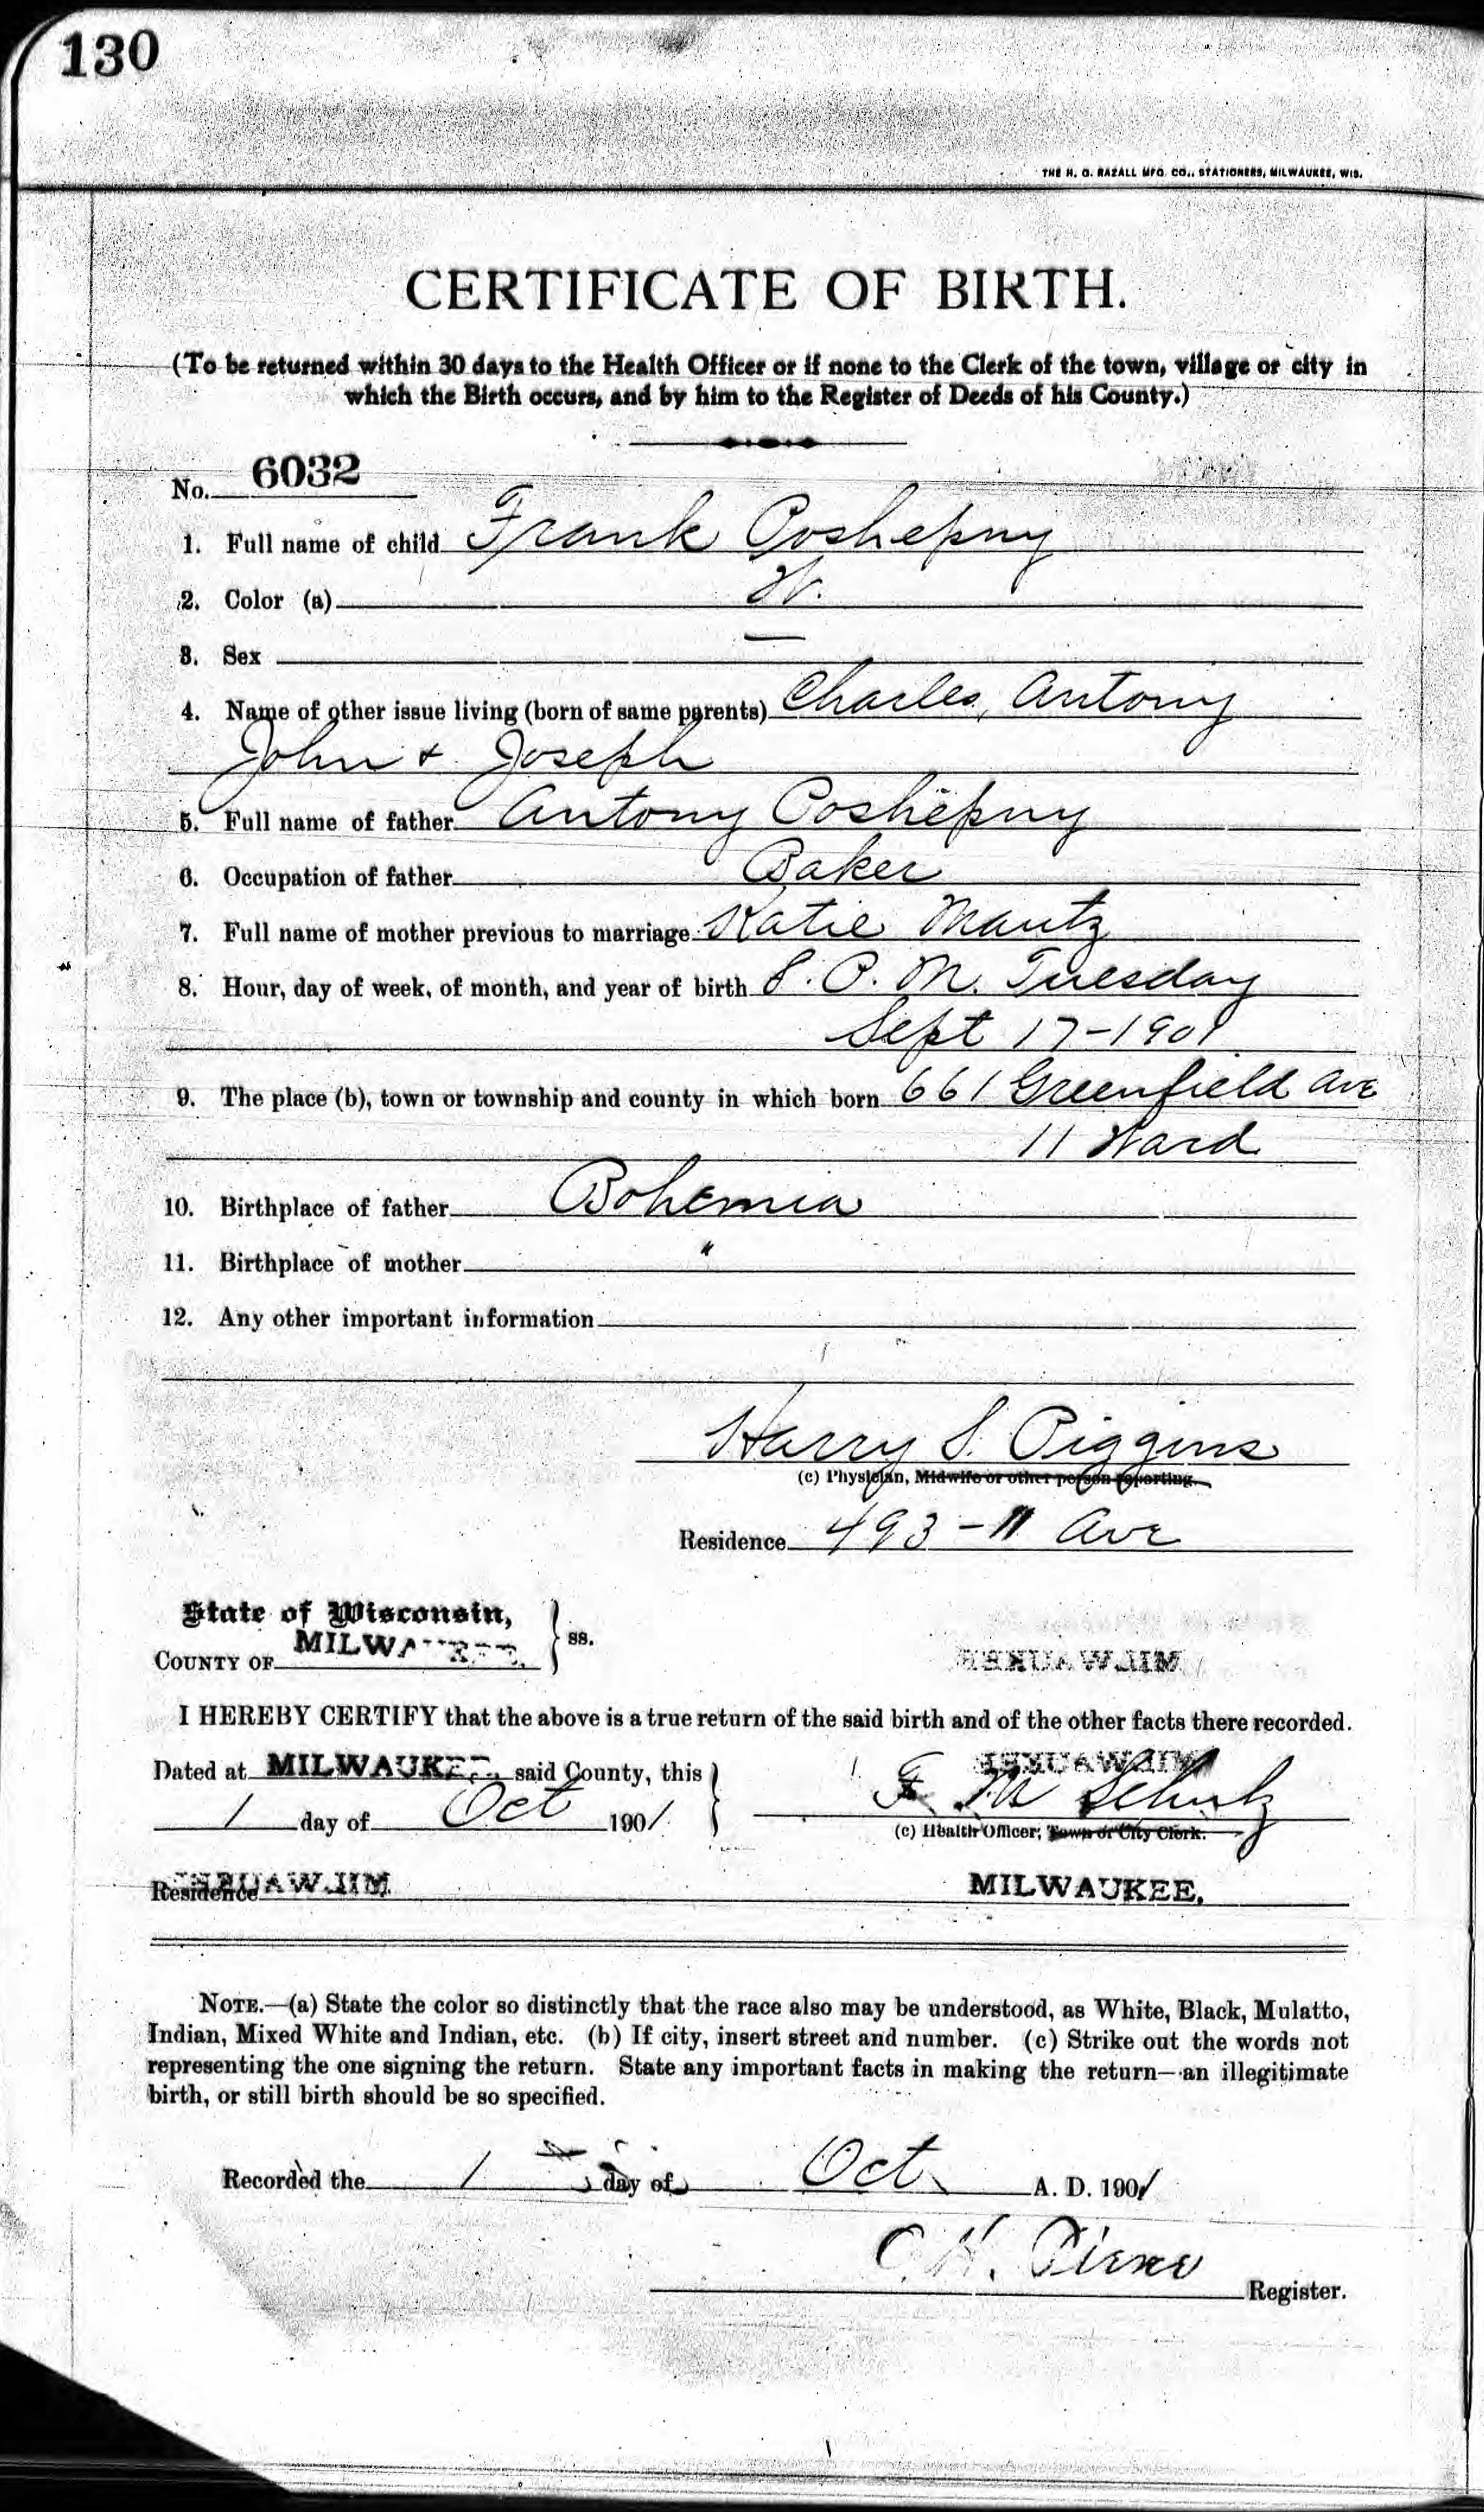 130
THE H. G. RAZALL MFG. CO., STATIONERS, MILWAUKEE, WIS.
CERTIFICATE OF BIRTH.
(To be returned within 30 days to the Health Officer or if none to the Clerk of the town, village or city in
which the Birth occurs, and by him to the Register of Deeds of his County.)
No. 6032
1. Full name of child Frank Poshepny
2. Color (a) W.
3. Sex —
4. Name of other issue living (born of same parents) Charles, Antony
John & Joseph
5. Full name of father Antony Poshepny
6. Occupation of father Baker
7. Full name of mother previous to marriage Katie Mautz
8. Hour, day of week, of month, and year of birth 8. P. M. Tuesday
Sept 17-1901
9. The place (b), town or township and county in which born 661 Greenfield Ave
11 Ward
10. Birthplace of father Bohemia
11. Birthplace of mother "
12. Any other important information
Harry S. Piggins
(c) Physician, Midwife or other person reporting.
Residence 493 - 11 Ave
State of Wisconsin,
COUNTY OF MILWAUKEE. } ss.
MILWAUKEE
I HEREBY CERTIFY that the above is a true return of the said birth and of the other facts there recorded.
MILWAUKEE
Dated at MILWAUKEE, said County, this
1 day of Oct 1901 } F M Schulz
(c) Health Officer, Town or City Clerk.
Residence MILWAUKEE MILWAUKEE.
NOTE.—(a) State the color so distinctly that the race also may be understood, as White, Black, Mulatto,
Indian, Mixed White and Indian, etc. (b) If city, insert street and number. (c) Strike out the words not
representing the one signing the return. State any important facts in making the return—an illegitimate
birth, or still birth should be so specified.
Recorded the 1 day of Oct A. D. 1901
C. H.
Register.